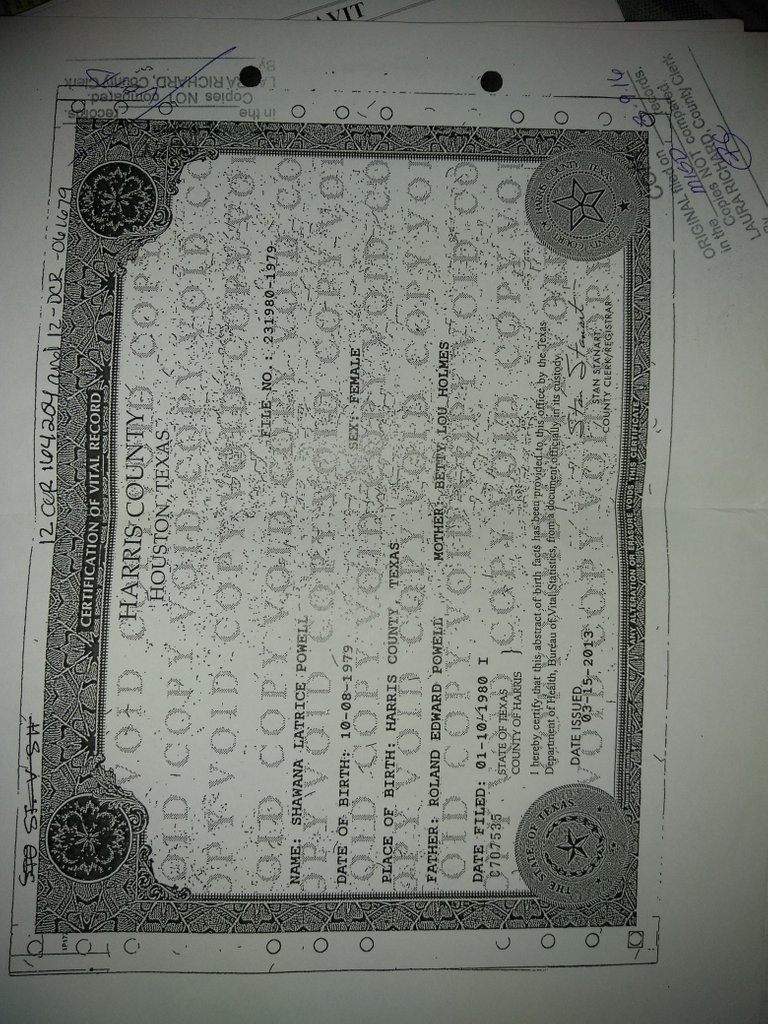 AVIT
ORIGINAL filed on
in the
records.
Copies NOT compared
LAURA RICHARD, County Clerk
By
in the
records.
Copies NOT compared
LAURA RICHARD, County Clerk
By
12 CCR 164204 and 12-DCR-061679
CERTIFICATION OF VITAL RECORD
HARRIS COUNTY
HOUSTON, TEXAS
FILE NO.: 231980-1979
NAME: SHAWANA LATRICE POWELL
DATE OF BIRTH: 10-08-1979
SEX: FEMALE
PLACE OF BIRTH: HARRIS COUNTY, TEXAS
FATHER: ROLAND EDWARD POWELL
MOTHER: BETTY LOU HOLMES
DATE FILED: 01-10-1980 I
C707535
STATE OF TEXAS
COUNTY OF HARRIS
I hereby certify that this abstract of birth facts has been provided to this office by the Texas
Department of Health, Bureau of Vital Statistics, from a document officially in its custody.
DATE ISSUED
03-15-2013
Stan Stanart
STAN STANART
COUNTY CLERK/REGISTRAR
THE STATE OF TEXAS
HARRIS COUNTY, TEXAS
VOID COPY VOID COPY
ANY ALTERATION OR ERASURE VOIDS THIS CERTIFICATE